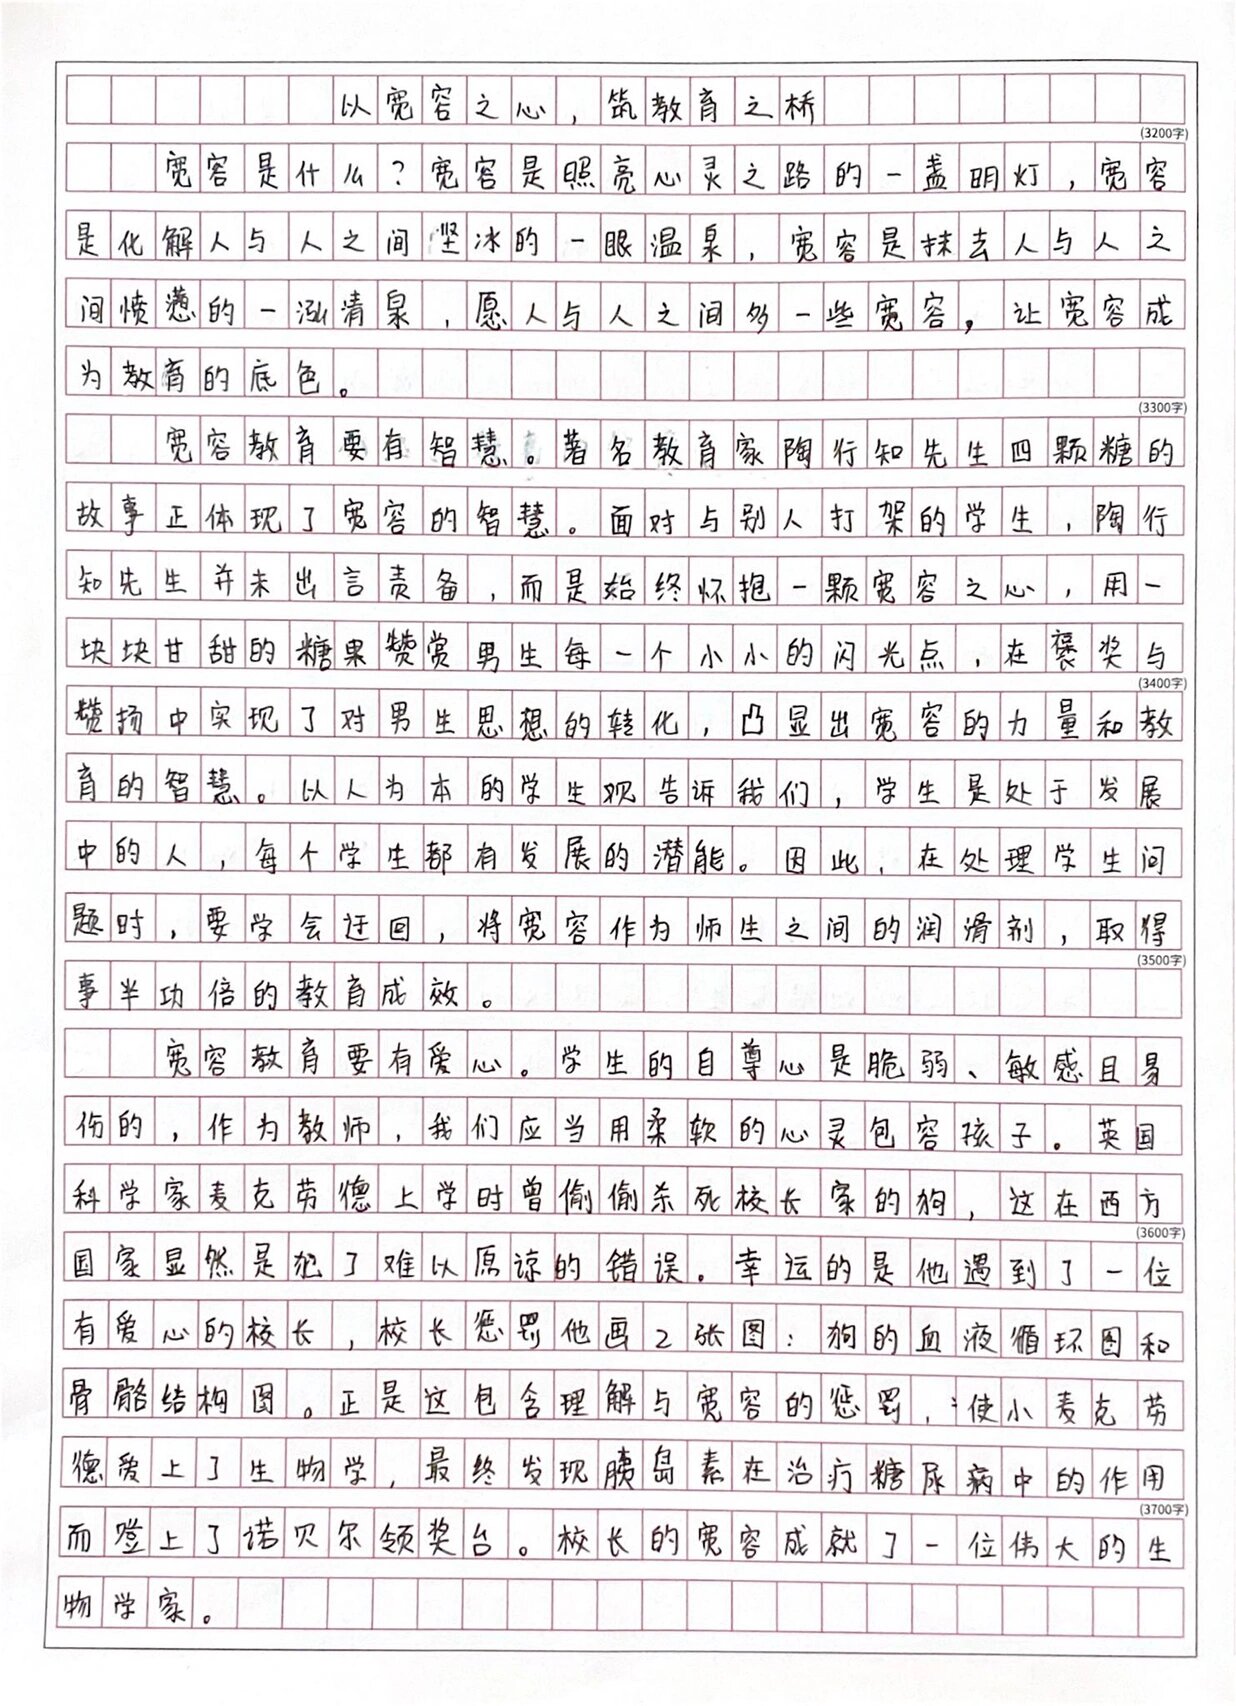 以宽容之心，筑教育之桥
(3200字)
宽容是什么？宽容是照亮心灵之路的一盏明灯，宽容
是化解人与人之间坚冰的一眼温泉，宽容是抹去人与人之
间愤懑的一泓清泉，愿人与人之间多一些宽容，让宽容成
为教育的底色。
(3300字)
宽容教育要有智慧。著名教育家陶行知先生四颗糖的
故事正体现了宽容的智慧。面对与别人打架的学生，陶行
知先生并未出言责备，而是始终怀抱一颗宽容之心，用一
块块甘甜的糖果赞赏男生每一个小小的闪光点，在褒奖与
(3400字)
赞扬中实现了对男生思想的转化，凸显出宽容的力量和教
育的智慧。以人为本的学生观告诉我们，学生是处于发展
中的人，每个学生都有发展的潜能。因此，在处理学生问
题时，要学会迂回，将宽容作为师生之间的润滑剂，取得
(3500字)
事半功倍的教育成效。
宽容教育要有爱心。学生的自尊心是脆弱、敏感且易
伤的，作为教师，我们应当用柔软的心灵包容孩子。英国
科学家麦克劳德上学时曾偷偷杀死校长家的狗，这在西方
(3600字)
国家显然是犯了难以原谅的错误。幸运的是他遇到了一位
有爱心的校长，校长惩罚他画2张图：狗的血液循环图和
骨骼结构图。正是这包含理解与宽容的惩罚，使小麦克劳
德爱上了生物学，最终发现胰岛素在治疗糖尿病中的作用
(3700字)
而登上了诺贝尔领奖台。校长的宽容成就了一位伟大的生
物学家。